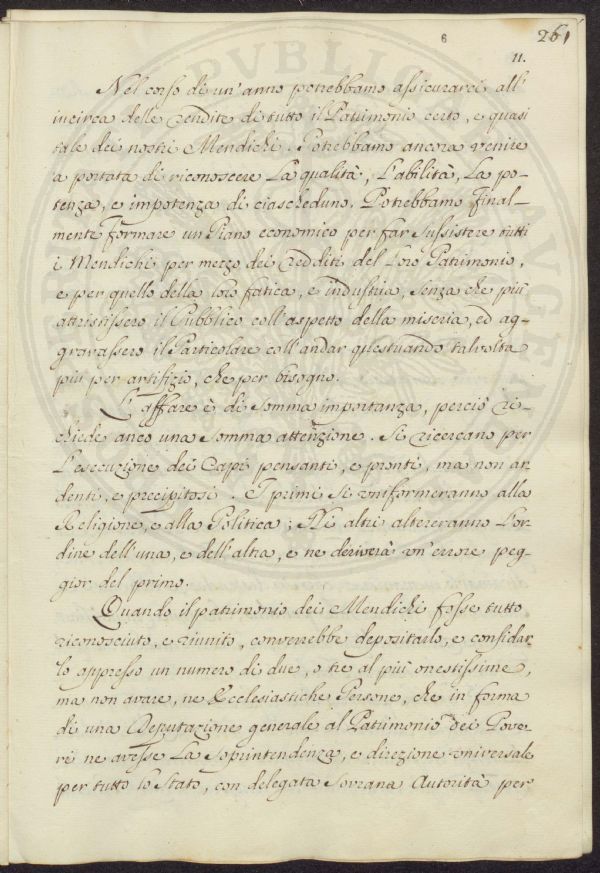 6
261
11.
Nel corso di un'anno potrebbamo assicurarci all'
incirca delle rendite di tutto il Patrimonio certo, e quasi
tale dei nostri Mendichi. Potrebbamo ancora venire
a portata di riconoscere La qualità, L'abilità, La po-
tenza, e impotenza di ciascheduno. Potrebbamo final-
mente formare un Piano economico per far sussistere tutti
i Mendichi per mezzo dei Redditi del Loro Patrimonio,
e per quello della loro fatica, e industria, senza che più
attristissero il Pubblico coll'aspetto della miseria, ed ag-
gravassero il Particolare coll'andar questuando talvolta
più per artifizio, che per bisogno.
L'affare è di somma importanza, perciò ri-
chiede anco una somma attenzione. Si ricercano per
L'esecuzione dei Capi pensanti, e pronti, ma non ar
denti, e precipitosi. I primi si uniformeranno alla
Religione, e alla Politica; Gli altri altereranno L'or-
dine dell'una, e dell'altra, e ne deriverà un'errore peg-
gior del primo.
Quando il patrimonio dei Mendichi fosse tutto
riconosciuto, e riunito, converrebbe depositarlo, e confidar
lo appresso un numero di due, o tre al più onestissime,
ma non avare, ne Ecclesiastiche Persone, che in forma
di una Deputazione generale al Patrimonio dei Pove-
ri ne avesse La soprintendenza, e direzione universale
per tutto lo Stato, con delegata Sovrana Autorità per